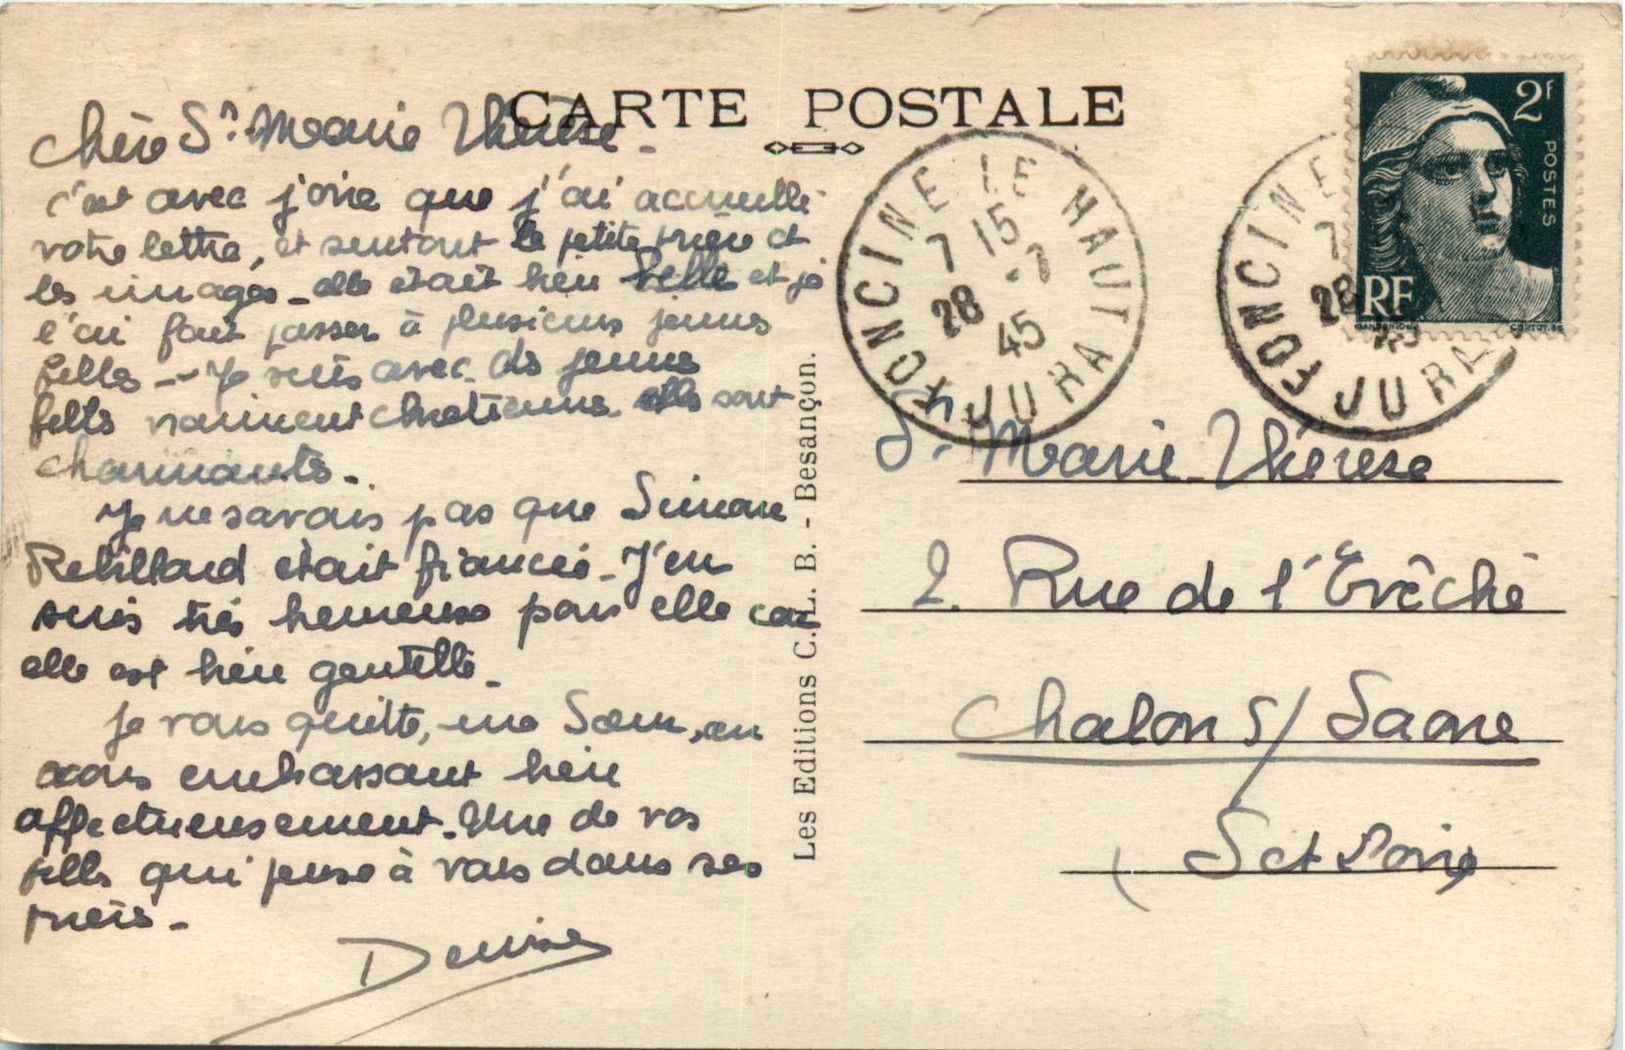 CARTE POSTALE
Chère Sr. Marie Thérèse.
c'est avec joie que j'ai accueilli
votre lettre, et surtout la petite prière et
les images - elle était bien belle et je
l'ai fait passer à plusieurs jeunes
filles -- Je suis avec des jeunes
filles vraiment chrétiennes elles sont
charmantes -.
Je ne savais pas que Simone
Rebillard était fiancée - J'en
suis très heureuse pour elle car
elle est bien gentille -
Je vous quitte, ma Sœur, en
vous embrassant bien
affectueusement - Une de vos
filles qui pense à vous dans ses
prières -
Denise
Les Editions C. L. B. - Besançon.
FONCINE LE HAUT
7 15
28 -7
45
JURA
FONCINE
7
28
45
JURA
2F
POSTES
RF
GANDON
CORTOT.SC
Sr. Marie-Thérèse
2. Rue de l'Evêché
Chalon s/ Saone
( S et Loire